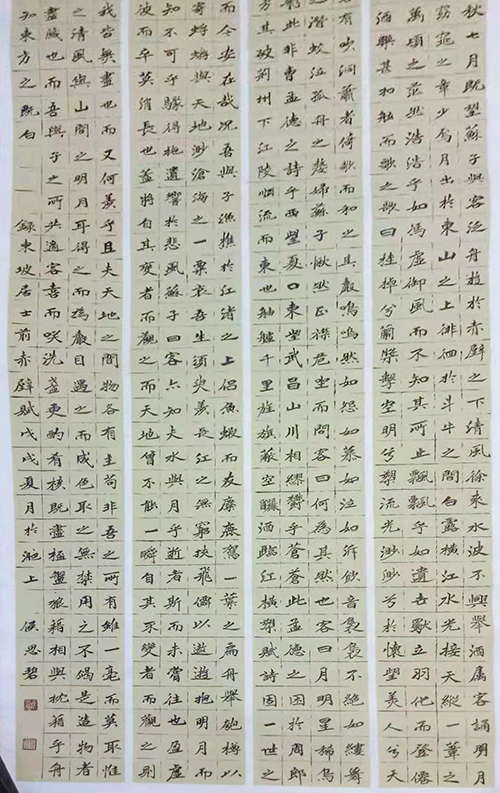 秋七月既望蘇子與客泛舟遊於赤壁之下清風徐來水波不興舉酒屬客誦明月
窈窕之章少焉月出於東山之上徘徊於斗牛之間白露橫江水光接天縱一葦之
萬頃之茫然浩浩乎如馮虛御風而不知其所止飄飄乎如遺世獨立羽化而登僊
酒樂甚扣舷而歌之歌曰桂棹兮蘭槳擊空明兮泝流光渺渺兮於懷望美人兮天
有吹洞簫者倚歌而和之其聲嗚嗚然如怨如慕如泣如訴餘音裊裊不絕如縷舞
潛蛟泣孤舟之嫠婦蘇子愀然正襟危坐而問客曰何為其然也客曰月明星稀烏
此非曹孟德之詩乎西望夏口東望武昌山川相繆鬱乎蒼蒼此孟德之困於周郎
其破荊州下江陵順流而東也舳艫千里旌旗蔽空釃酒臨江橫槊賦詩固一世之
而今安在哉況吾與子漁樵於江渚之上侶魚蝦而友麋鹿駕一葉之扁舟舉匏樽以
寄蜉蝣與天地渺滄海之一粟哀吾生須臾羨長江之無窮挾飛僊以遨遊抱明月而
知不可乎驟得托遺響於悲風蘇子曰客亦知夫水與月乎逝者斯而未嘗往也盈虛
彼而卒莫消長也蓋將自其變者而觀之而天地曾不能一瞬自其不變者而觀之則
我皆無盡也而又何羨乎且夫天地之間物各有主苟非吾之所有雖一毫而莫取惟
之清風與山間之明月耳得之而為聲目遇之而成色取之無禁用之不竭是造物者
盡藏也而吾與子之所共適客喜而咲洗盞更酌肴核既盡杯盤狼籍相與枕藉乎舟
知東方之既白 錄東坡居士前赤壁賦戊戌夏月於滬上 侯思碧